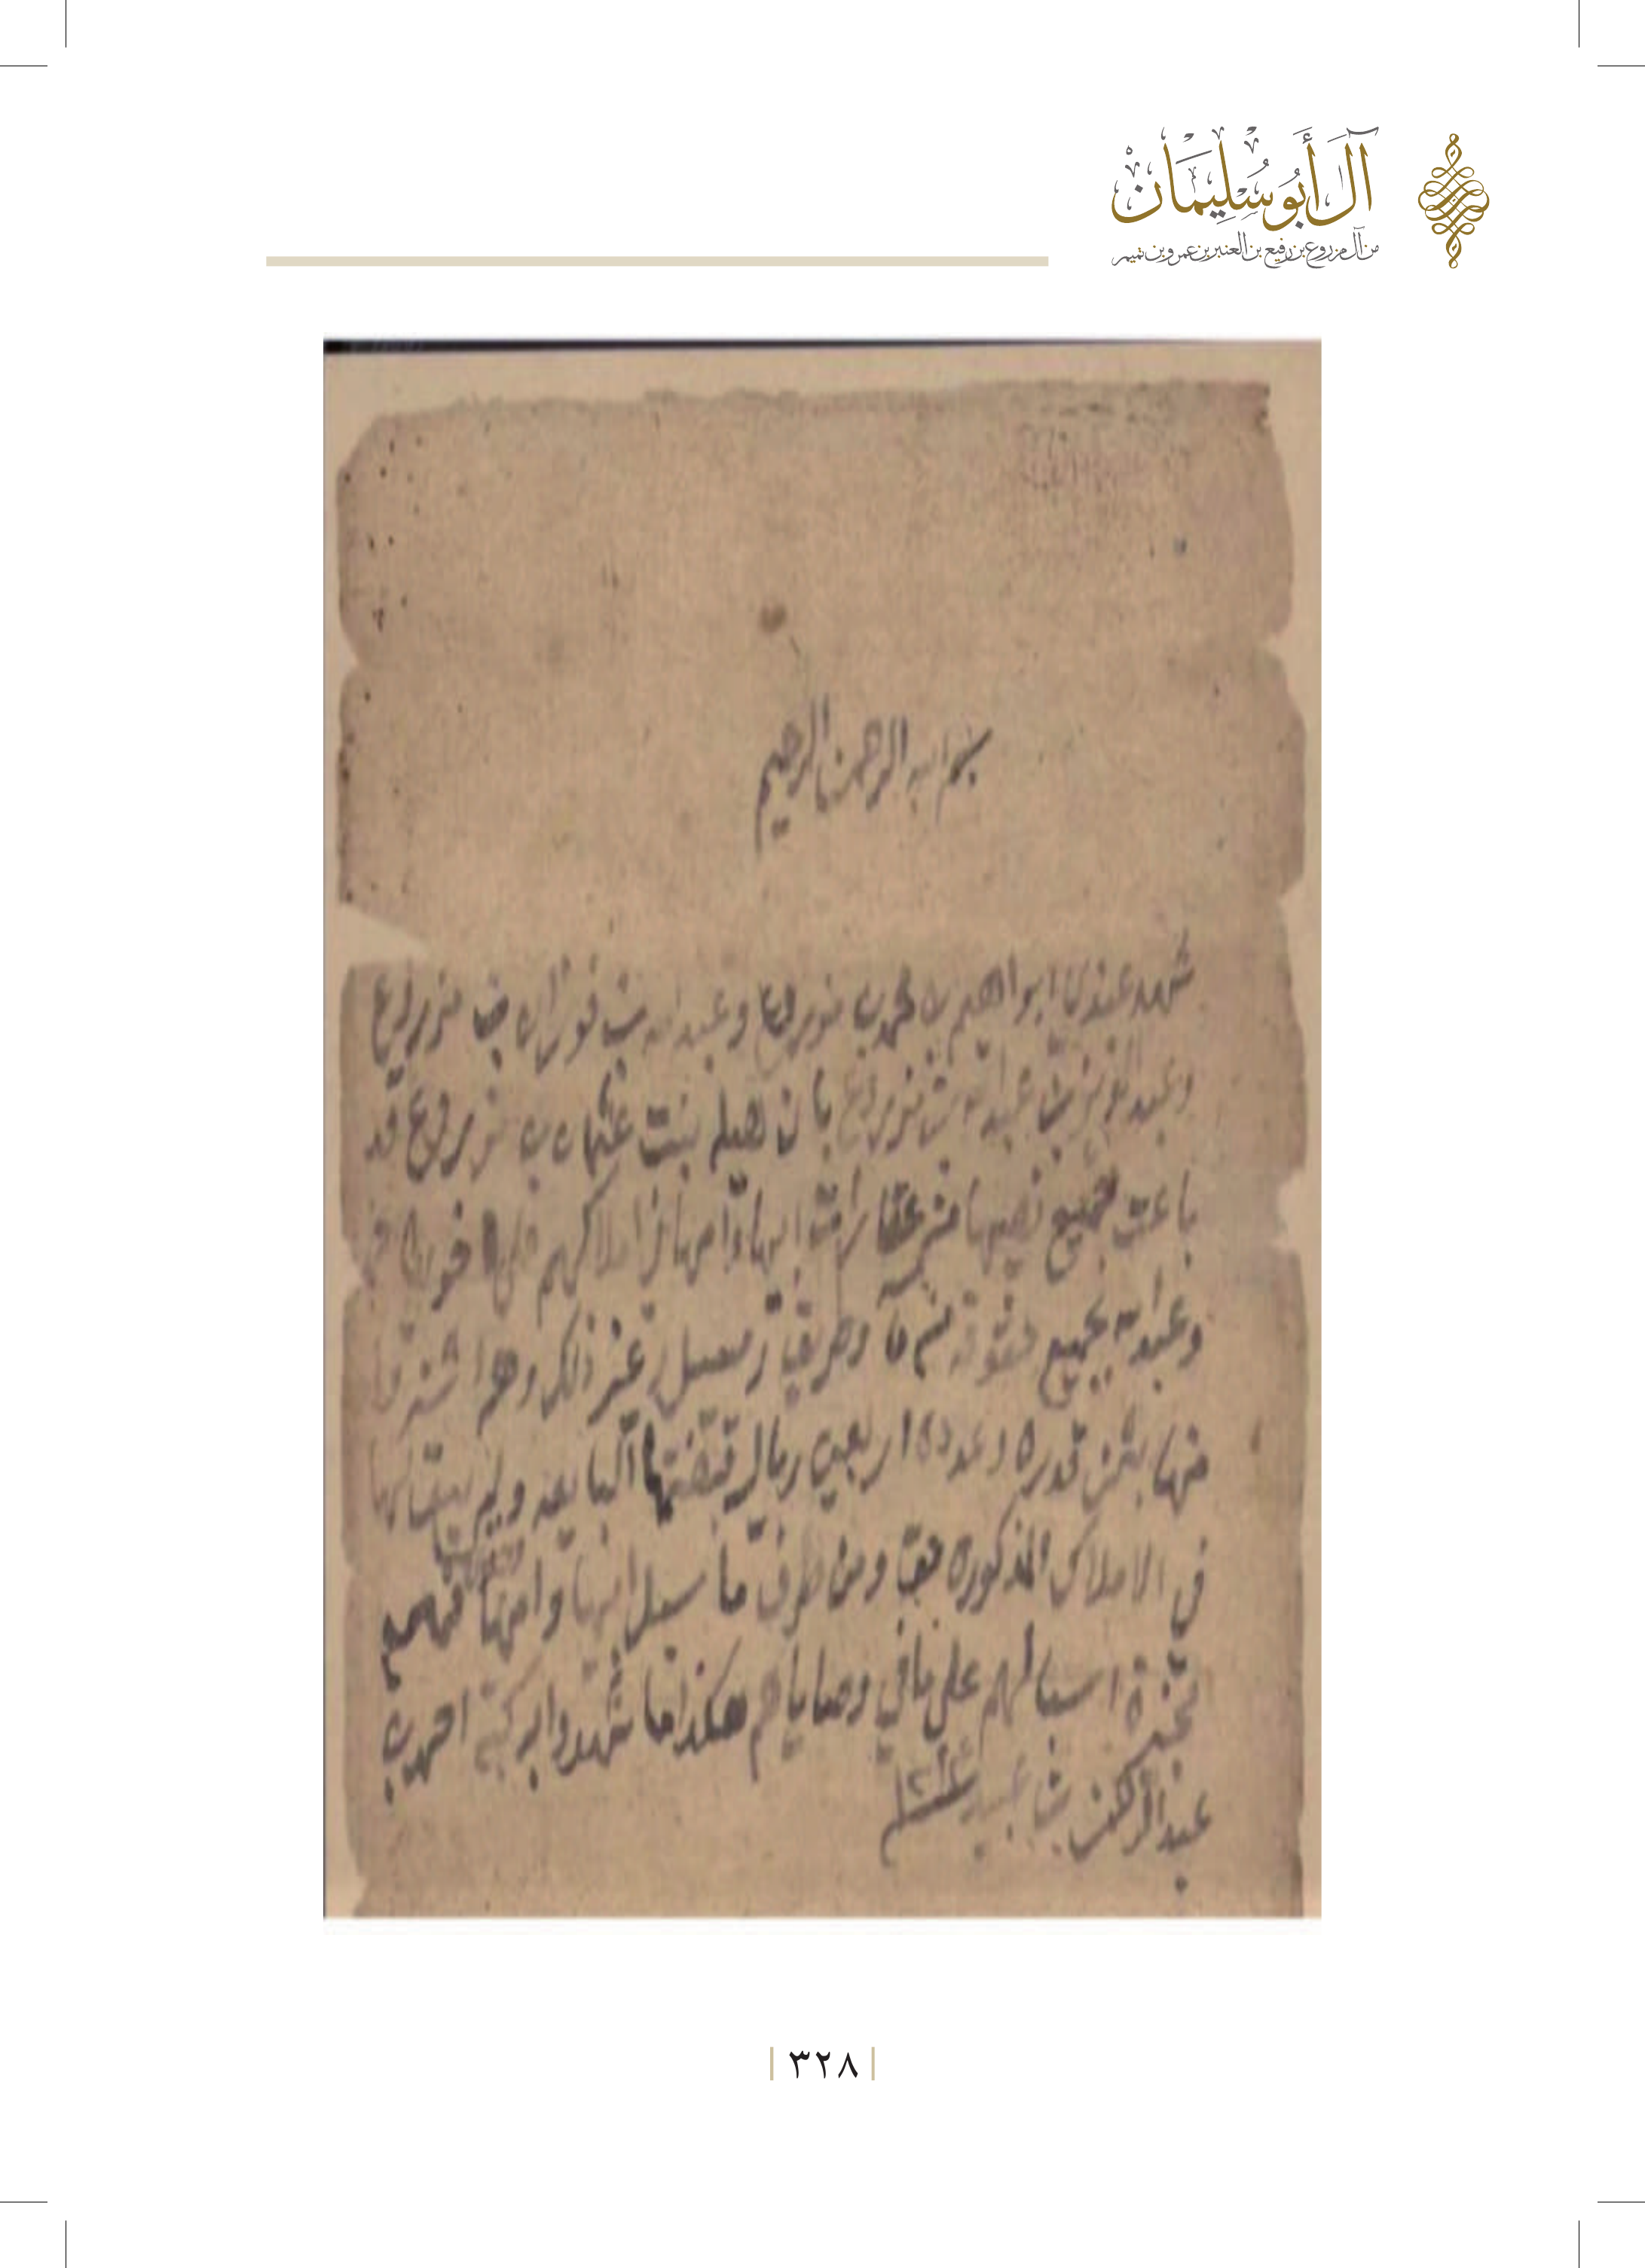 آل أَبُو سُلِيْمَانْ
من آل مزروع بن رفيع بن العنبر بن عمرو بن تميم
بسم الله الرحمن الرحيم
شهد عندي ابراهيم بن محمد بن مزروع وعبد الله بن فوزان بن مزروع
وعبد العزيز بن عبد الله بن مزروع بان هيله بنت عثمان بن مزروع قد
باعت جميع نصيبها من عقارات ابيها وامها واملاكهم على فوزان
وعبد الله بجميع حقوقه من ما وطريق ومسيل وغير ذلك وهم اشتروا
منها بثمن قدره وعدده اربعين ريال قبضتها البايعه ولم يبق لها
في الاملاك المذكوره حق ومن طرف ما سبل ابيها وامها فهم
اسبالهم على ما في وصاياهم هكذا ما شهدوا به كتبه احمد بن
عبد الرحمن بن عبيد
٣٢٨